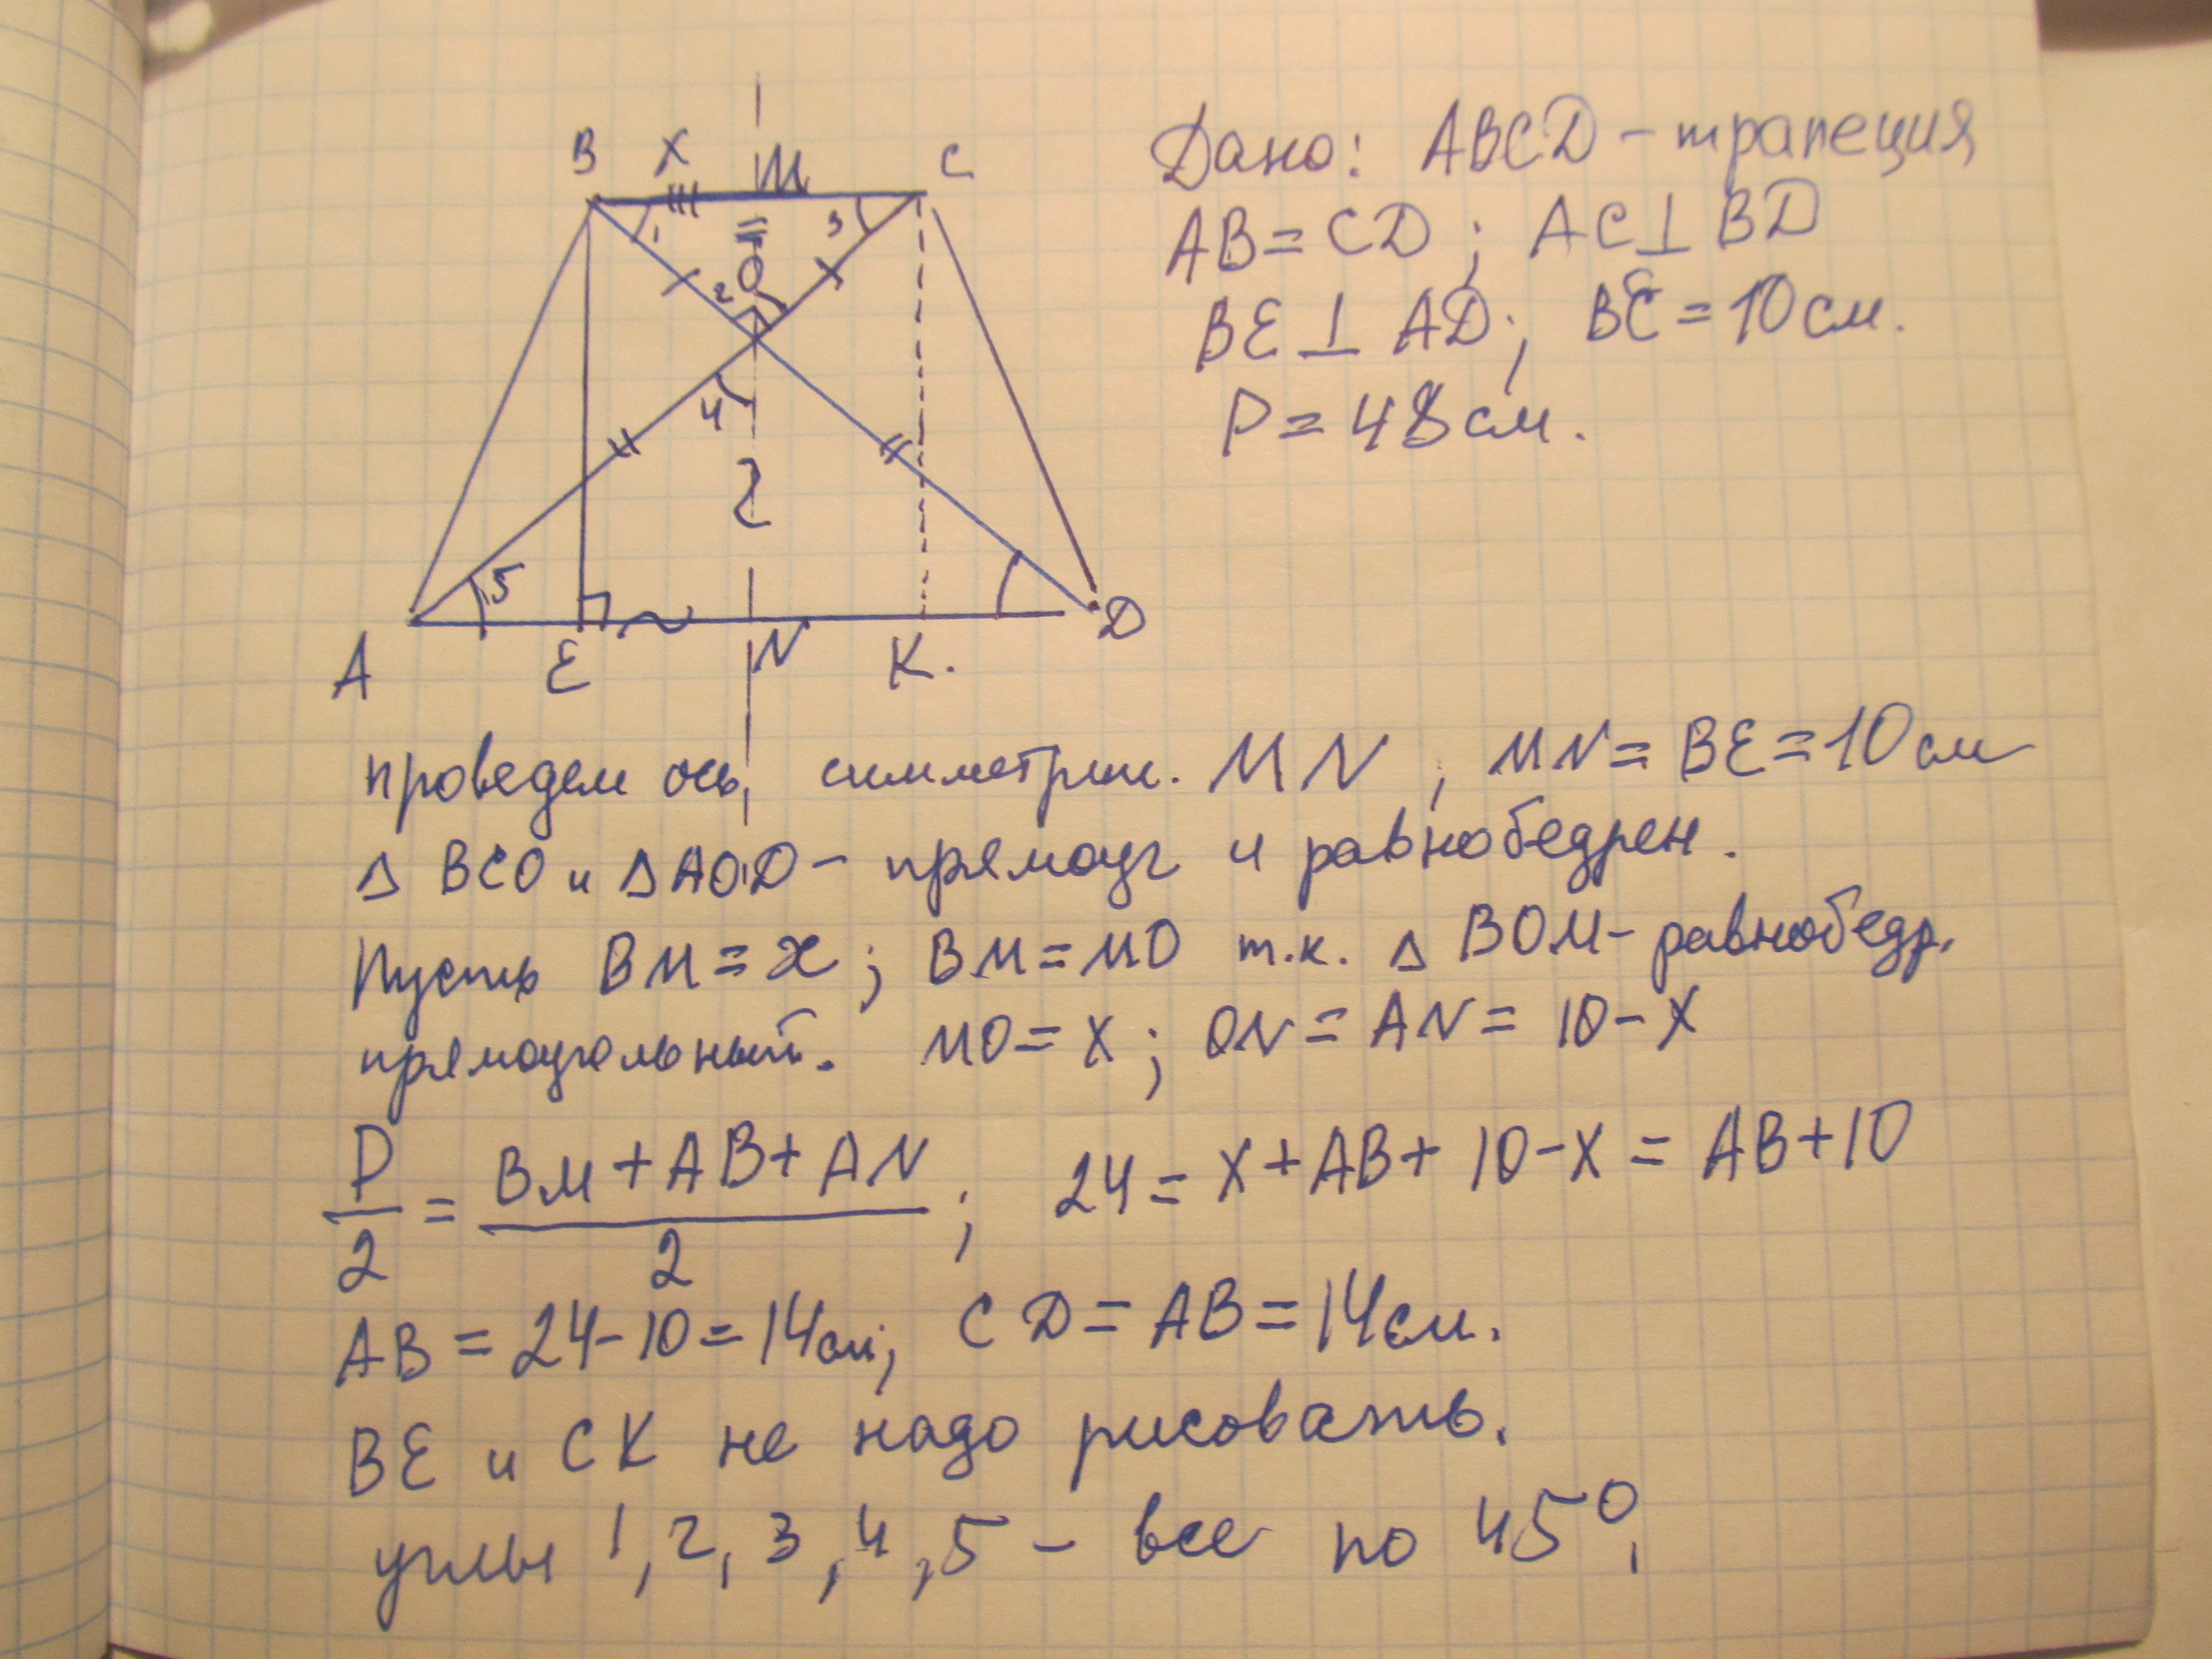 B X M C
1 3
2 O
4
5
A E N K. D
Дано: ABCD – трапеция
AB = CD ; AC ⊥ BD
BE ⊥ AD ; BE = 10 см.
P = 48 см.
проведем ось симметрии. MN , MN = BE = 10 см
Δ BCO и Δ AOD – прямоуг и равнобедрен.
Пусть BM = x ; BM = MO т.к. Δ BOM – равнобедр.
прямоугольный. MO = X ; ON = AN = 10 – X
P/2 = (BM + AB + AN)/2 ; 24 = X + AB + 10 – X = AB + 10
AB = 24 – 10 = 14 см; CD = AB = 14 см.
BE и CK не надо рисовать.
углы 1, 2, 3, 4, 5 – все по 45°.